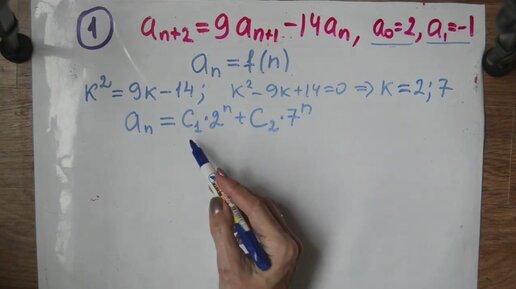 ① aₙ₊₂ = 9aₙ₊₁ - 14aₙ, a₀=2, a₁=-1
aₙ = f(n)
k² = 9k - 14; k² - 9k + 14 = 0 ⇒ k = 2; 7
aₙ = C₁·2ⁿ + C₂·7ⁿ